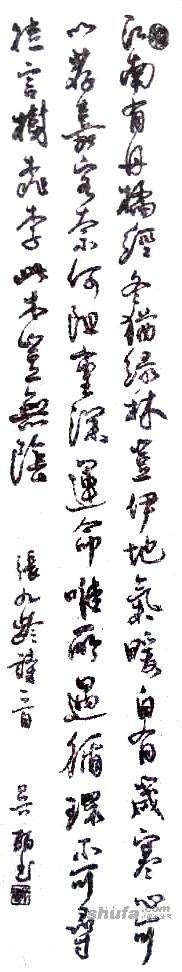 江南有丹橘經冬猶綠林豈伊地氣暖自有歲寒心可
以荐嘉客奈何阻重深運命唯所遇循環不可尋
徒言樹桃李此木豈無陰 張九齡詩一首
shufa.com